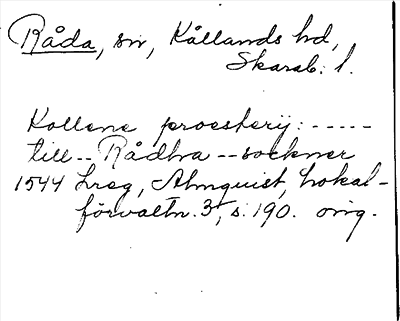 Råda, sn, Kållands hd,
Skarab. l.
Kollene proesterij: -----
till -- Rådhra -- sockner
1544 Lreg, Almquist, Lokal-
förvaltn. 3, s. 190. orig.